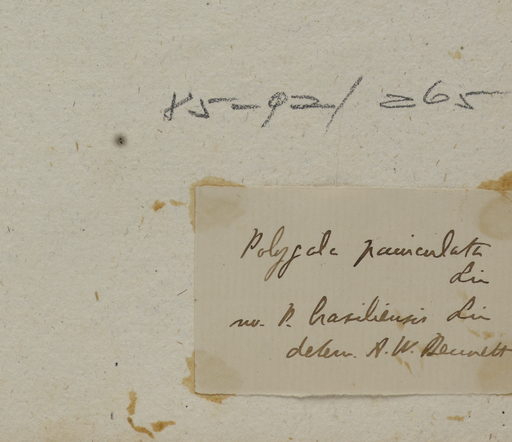 85-92/ 265
Polygala paniculata
Lin
no. P. brasiliensis Lin
determ. A. W. Bennett